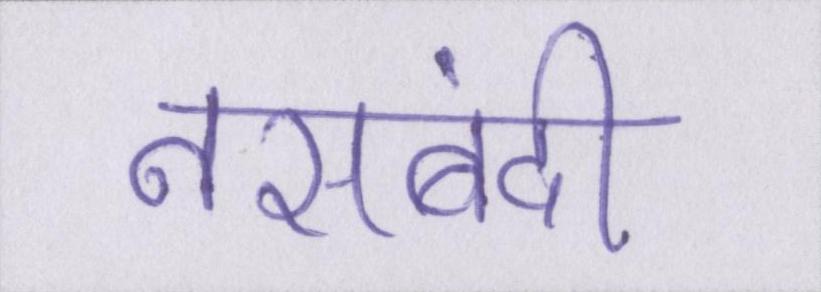 नसबंदी